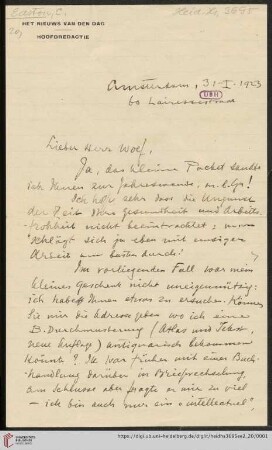 Easton, C.
Heid. Hs. 3695
20)
HET NIEUWS VAN DEN DAG
HOOFDREDACTIE
Amsterdam, 31-I. 1923
60 Lairessestraat
UBH
Lieber Herr Wolf,
Ja, das kleine Packet sandte
ich Ihnen zur Jahreswende, m. l. Hr!
Ich hoffe sehr dass die Ungunst
der Zeit Ihre Gesundheit und Arbeits-
frohheit nicht beeinträchtigt; man
schlägt sich ja eben mit
Arbeit am besten durch.
Im vorliegenden Fall war mein
kleines Geschenk nicht uneigennützig:
ich habe Ihnen etwas zu ersuchen. Können
Sie mir die Adresse geben wo ich eine
B. Durchmusterung (Atlas und Text,
neue Auflage) antiquarisch bekommen
könnte? Ich war früher mit einer Buch-
handlung darüber in Briefwechslung,
am Schlusse aber fragte sie mir zu viel
— ich bin auch nur ein "intellectuel"
https://digi.ub.uni-heidelberg.de/diglit/heidhs3695eA3_20/0001